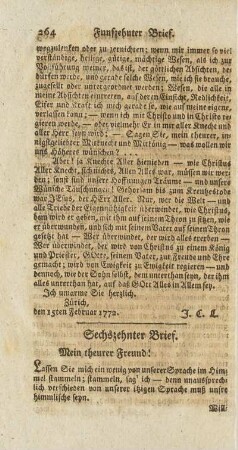 264 Funfzehnter Brief.
wegzulenken oder zu zernichten; wenn mir immer so viel
verständige, heilige, gütige, mächtige Wesen, als ich zur
Vollführung meiner, das ist, der göttlichen Absichten, be-
dürfen werde, und gerade solche Wesen, wie ich sie brauche,
zugesellt oder untergeordnet werden; Wesen, die alle in
meine Absichten eintreten, auf deren Einsicht, Redlichkeit,
Eifer und Kraft ich mich gerade so, wie auf meine eigene
verlassen kann; — wenn ich mit Christo und in Christo re-
gieren werde, — oder vielmehr Er in mir aller Knecht und
aller Herr seyn wird; — Sagen Sie, mein theurester, in-
nigstgeliebter Mitknecht und Mitkönig — was wollen wir
uns Höherer wünschen? . . .
Aber! ja Knechte Aller hienieden — wie Christus
Aller Knecht, Allen Alles war, müssen wir wer-
den; sonst sind unsre Hoffnungen Träume — und unsere
Wünsche Täuschungen! Gehorsam bis zum Kreuzestode
war JEsus, der HErr Aller. Nur, wer die Welt — und
alle Triebe der Eigennützigkeit überwindet — dem wird er
geben, mit ihm auf seinem Thron zu sitzen, wie er
überwunden hat, und sich mit seinem Vater auf seinen Thron
gesetzt hat — Wer überwindet, der wird alles ererben —
Wer überwindet, der wird von Christus zu einem König
und Priester, GOtte, seinem Vater, zur Freude und Ehre
gemacht; wird von Ewigkeit zu Ewigkeit regieren — und
wenn, wie der Sohn selbst, dem unterthan seyn, der ihm
alles unterthan hat, auf daß GOtt Alles in Allem sey.
Ich umarme Sie herzlich.
Zürich,
den 15ten Februar 1772. J. C. L.
Sechszehnter Brief.
Mein theurer Freund!
Lassen Sie mich ein wenig von unserer Sprache im Him-
mel stammeln; stammeln, sag' ich — denn unaussprech-
lich verschieden von unserer itzigen Sprache muß unsre
himmlische seyn.